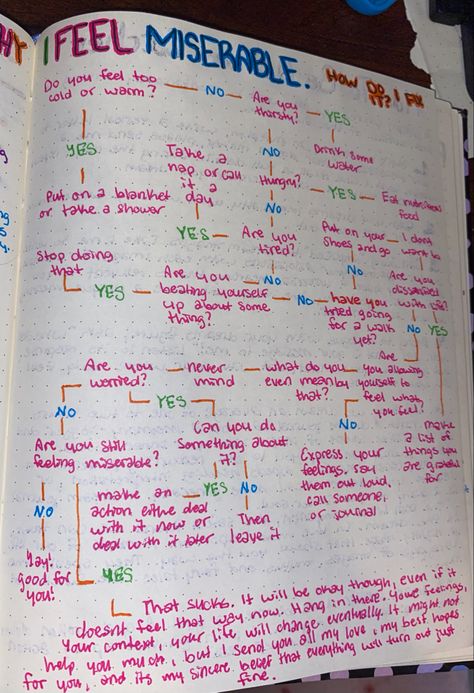 I FEEL MISERABLE.
HOW DO I FIX IT?
Do you feel too cold or warm?
NO
Are you thirsty?
YES
Drink some water
YES
Put on a blanket or take a shower
NO
Hungry?
YES
Eat nutritious food
NO
Take a nap or call it a day
YES
Are you tired?
NO
Put on your shoes and go
I dont want to
Stop doing that
YES
Are you beating yourself up about some thing?
NO
have you tried going for a walk yet?
NO
Are you dissatisfied with life?
NO
YES
Are you worried?
never mind
what do you even mean by that?
Are you allowing yourself to feel what you feel?
NO
YES
Can you do something about it?
NO
make a list of things you are grateful for
Are you still feeling miserable?
Express your feelings. say them out loud, call someone, or journal
YES
NO
make an action either deal with it now or deal with it later
Then leave it
NO
Yay! good for you!
YES
That sucks. It will be okay though, even if it
doesnt feel that way now. Hang in there. Your feelings,
Your context, your life will change eventually. It might not
help you much, but I send you all my love, my best hopes
for you, and its my sincere belief that everything will turn out just
fine.